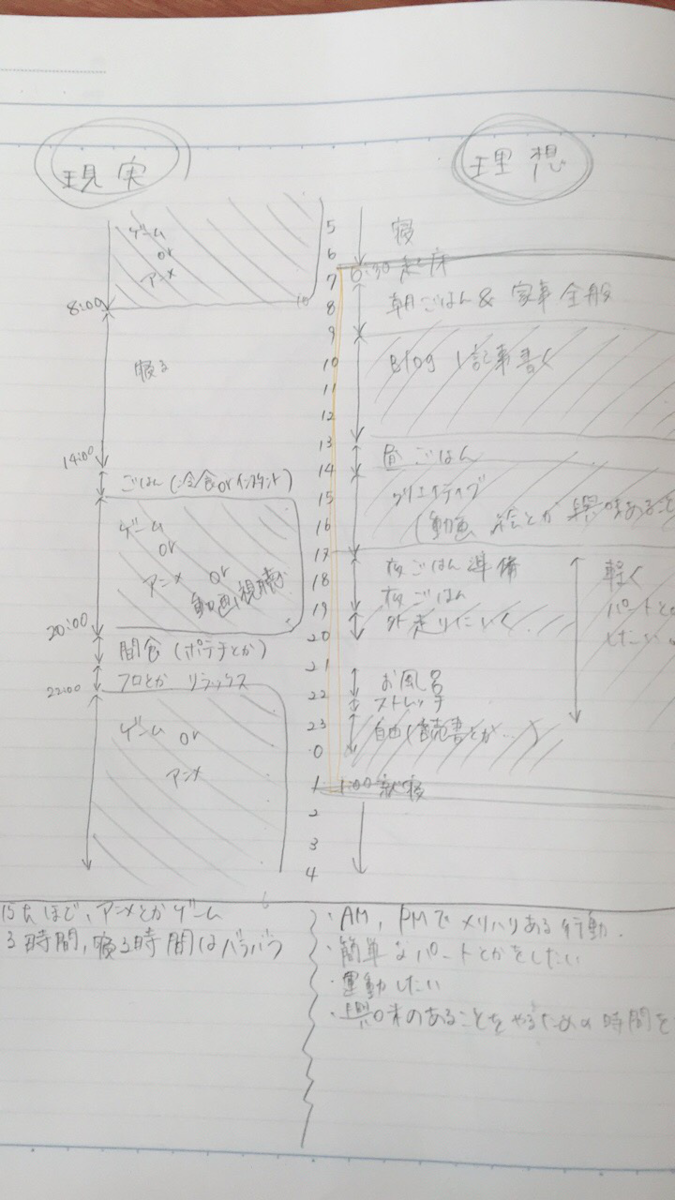 現実
ゲーム
or
アニメ
8:00
寝る
14:00
ごはん(冷食orインスタント)
ゲーム
or
アニメ or
動画視聴
20:00
間食(ポテチとか)
22:00
フロとか リラックス
ゲーム
or
アニメ
5
6
7
8
9
10
11
12
13
14
15
16
17
18
19
20
21
22
23
0
1
2
3
4
理想
寝
6:30 起床
朝ごはん & 家事全般
Blog 1記事書く
昼ごはん
クリエイティブ
(動画 絵とか 興味あること
夜ごはん準備
夜ごはん
外走りにいく
お風呂
ストレッチ
自由(読書とか…)
1:00 就寝
軽く
パートと
したい
15hほど、アニメとかゲーム
る時間,寝る時間はバラバラ
・AM, PMでメリハリある行動.
・簡単なパートとかをしたい
・運動したい
・興味のあることをやるための時間を